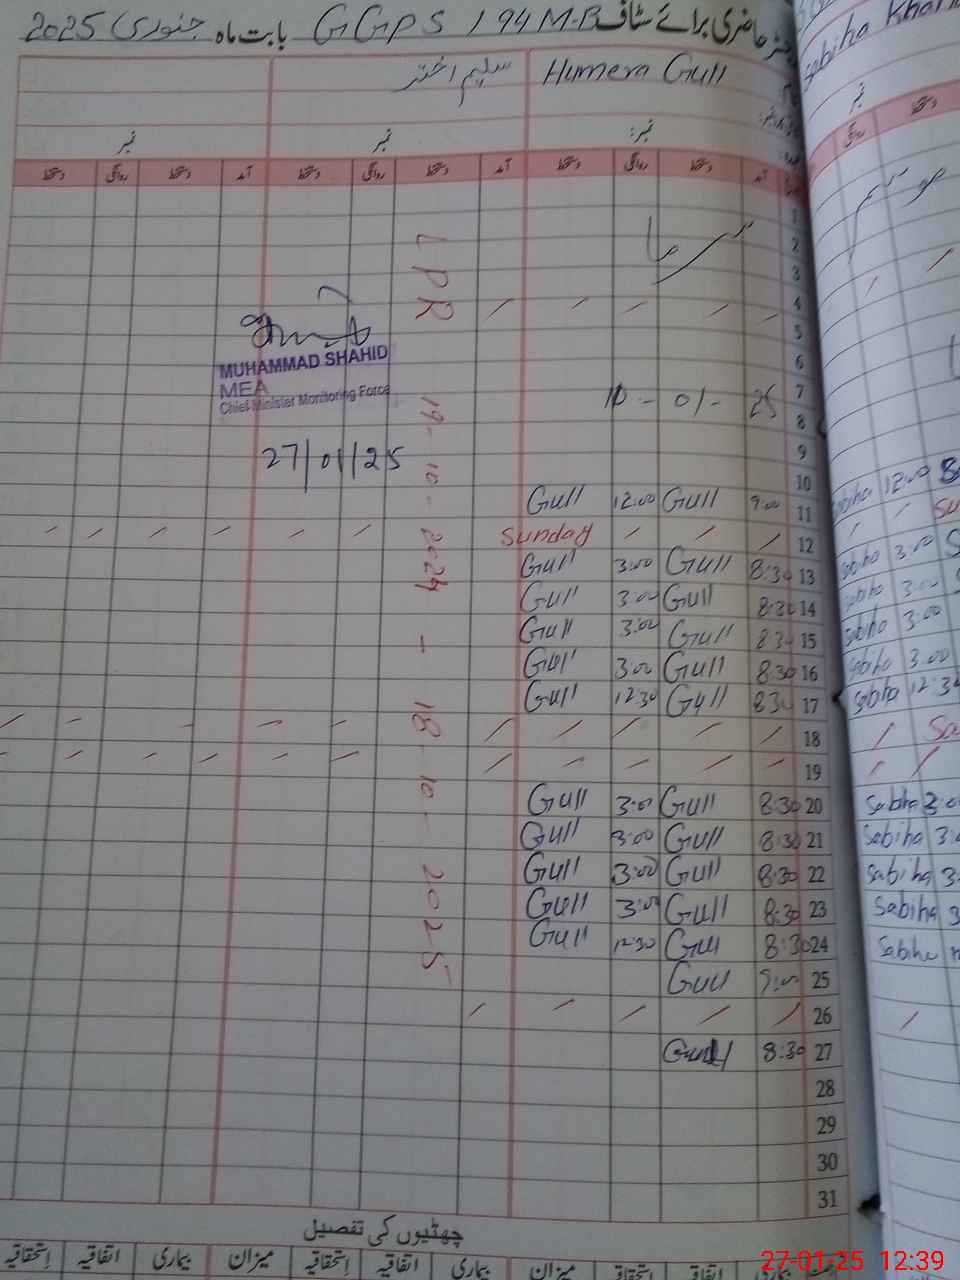 حاضری برائے سٹاف GGPS 194 M.B بابت ماہ جنوری 2025
Sabiha
Humera Gull سلیم اختر
نمبر: نمبر نمبر
نمبر
آمد دستخط روانگی دستخط آمد دستخط روانگی دستخط آمد دستخط روانگی دستخط
1
2
3
4
5
6
7
8
9
10
LPR 19-10-2024 - 18-10-2025
10-01-25
MUHAMMAD SHAHID
MEA
Chief Minister Monitoring Force
27/01/25
11 9:00 Gull 12:00 Gull Sabiha 12:00
12 / / / Sunday / / / / /
13 8:30 Gull 3:00 Gull Sabiha 3:00
14 8:30 Gull 3:00 Gull Sabiha 3:00
15 8:30 Gull 3:00 Gull Sabiha 3:00
16 8:30 Gull 3:00 Gull Sabiha 3:00
17 8:30 Gull 12:30 Gull Sabiha 12:30
18 / / / / / / / / / /
19 / / / / / / / / / /
20 8:30 Gull 3:00 Gull Sabiha
21 8:30 Gull 3:00 Gull Sabiha
22 8:30 Gull 3:00 Gull Sabiha
23 8:30 Gull 3:00 Gull Sabiha
24 8:30 Gull 12:30 Gull Sabiha
25 9:00 Gull
26 / / / / /
27 8:30 Gull
28
29
30
31
چھٹیوں کی تفصیل
اتفاقیہ استحقاقیہ میزان بیماری اتفاقیہ استحقاقیہ میزان بیماری اتفاقیہ استحقاقیہ
27-01-25 12:39